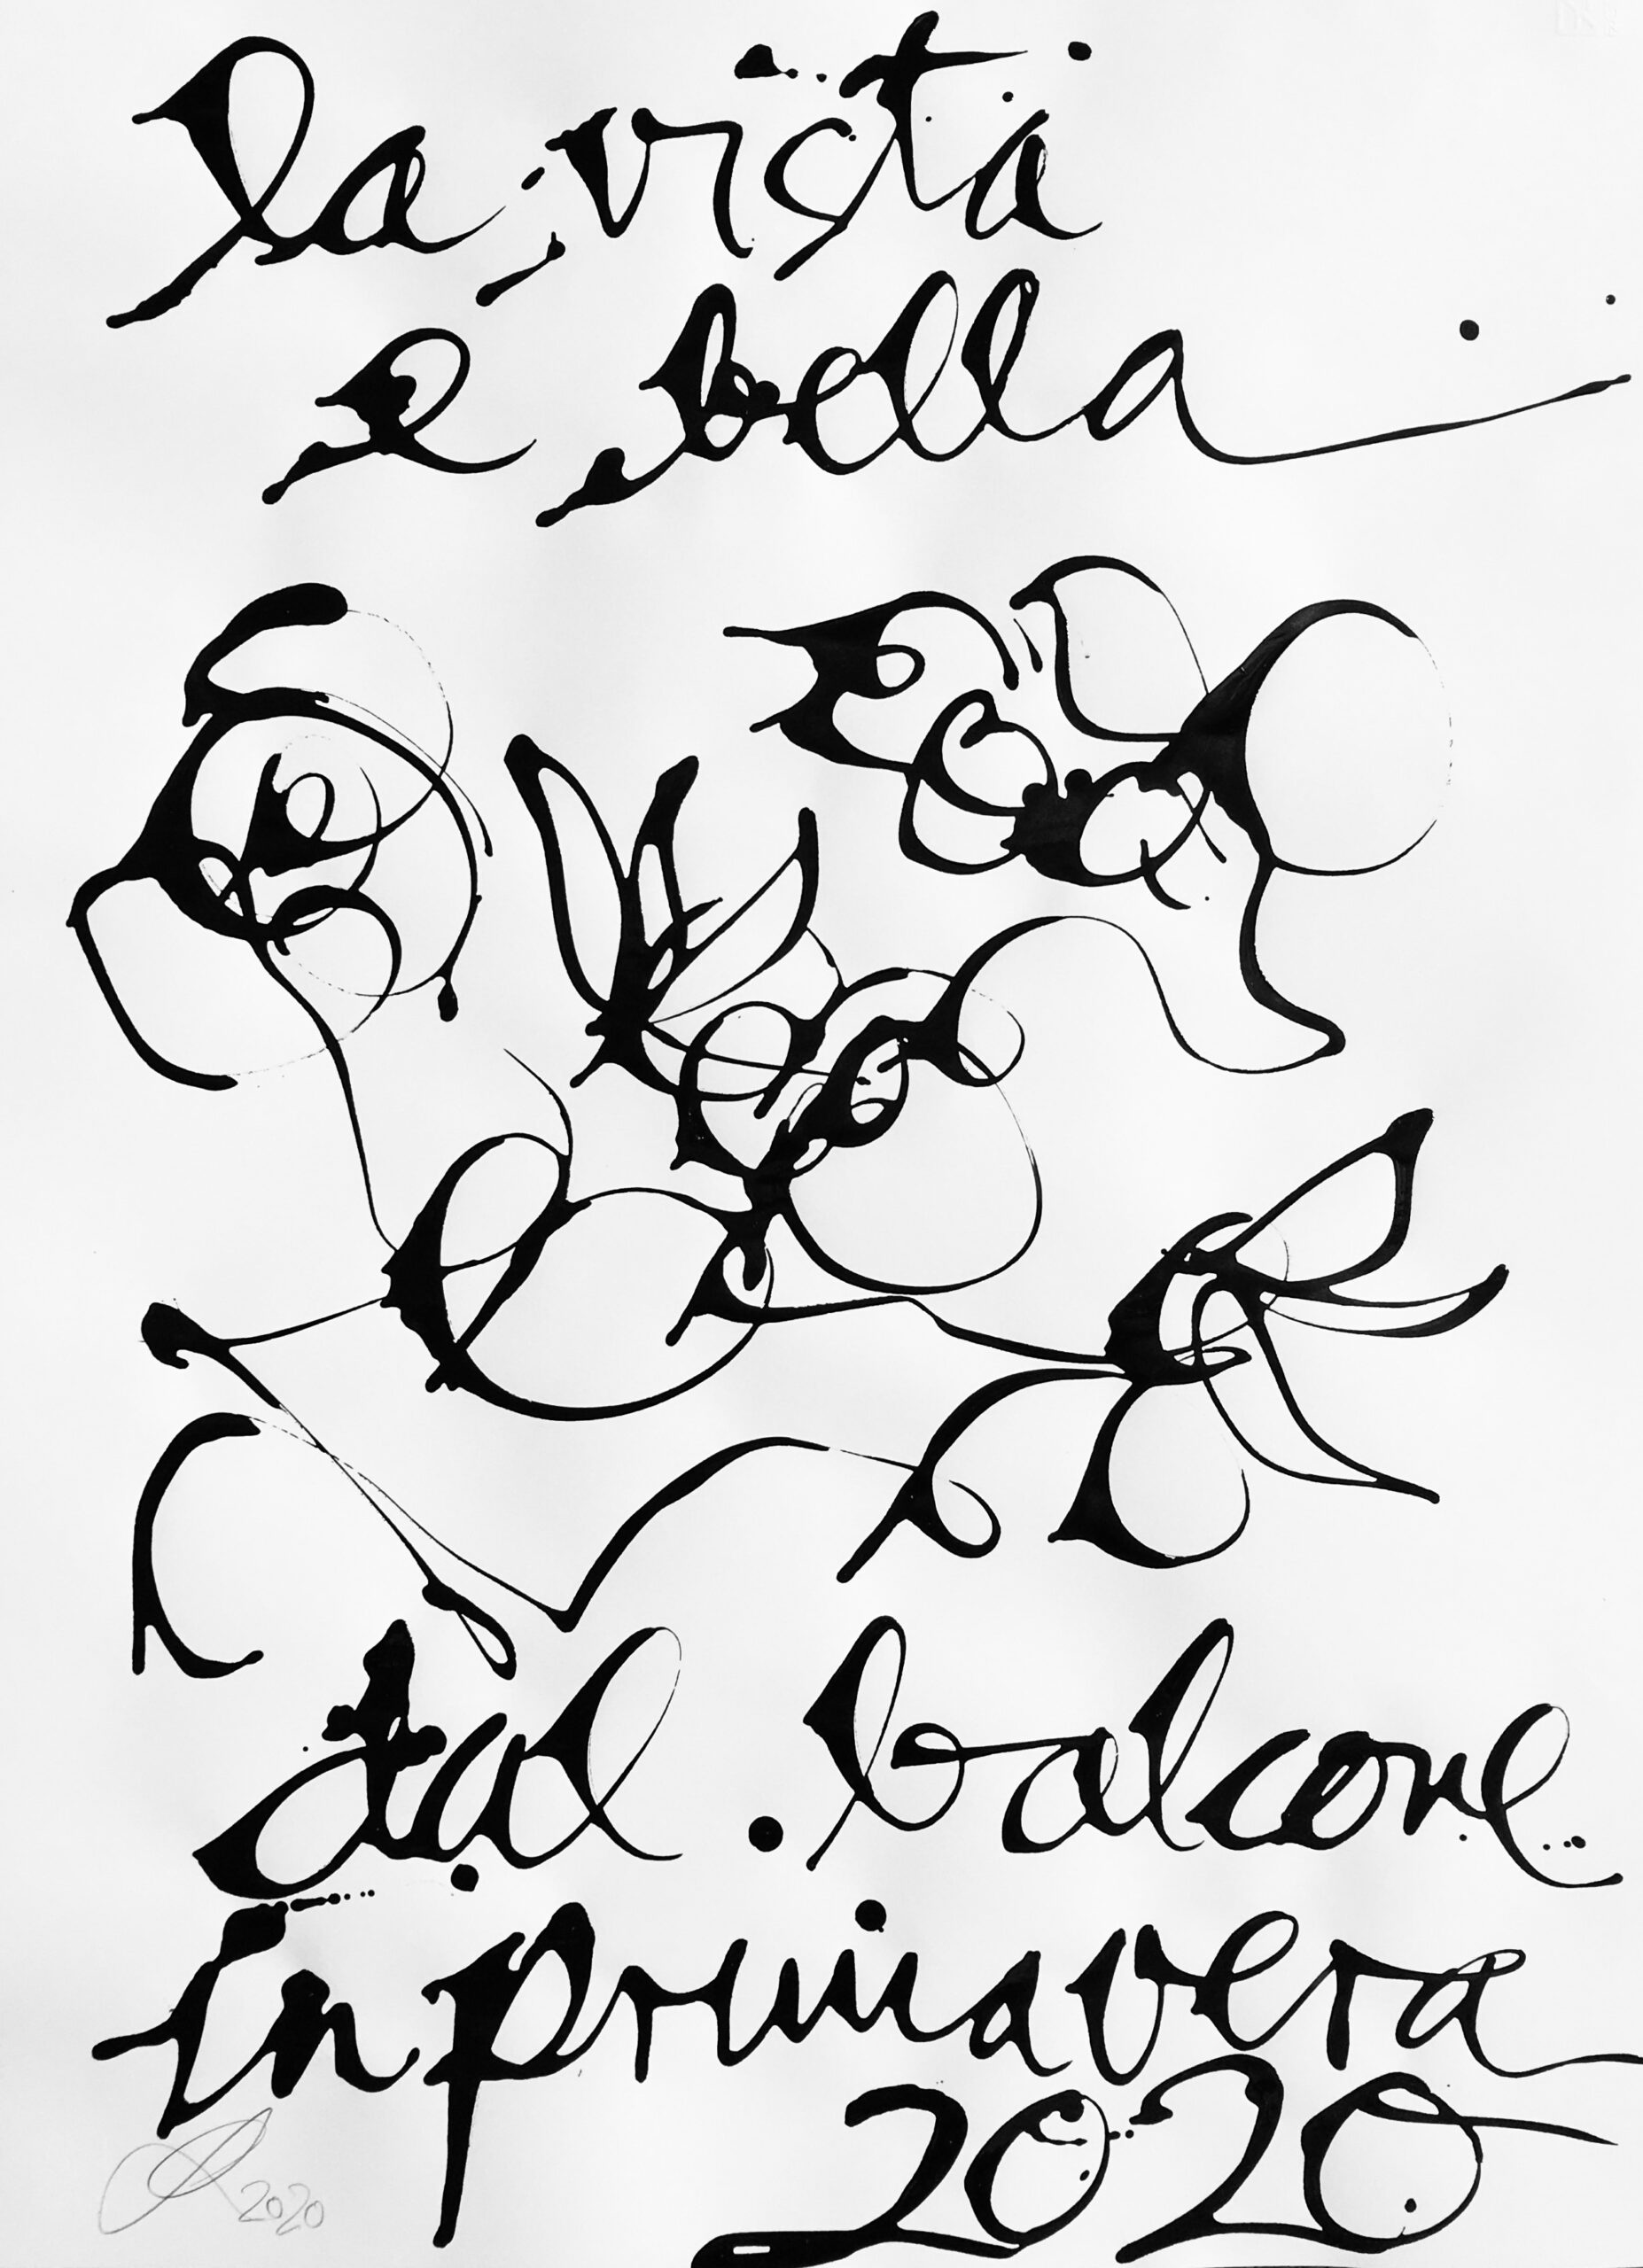 la vista
e bella
dal balcone
in primavera
2020
2020